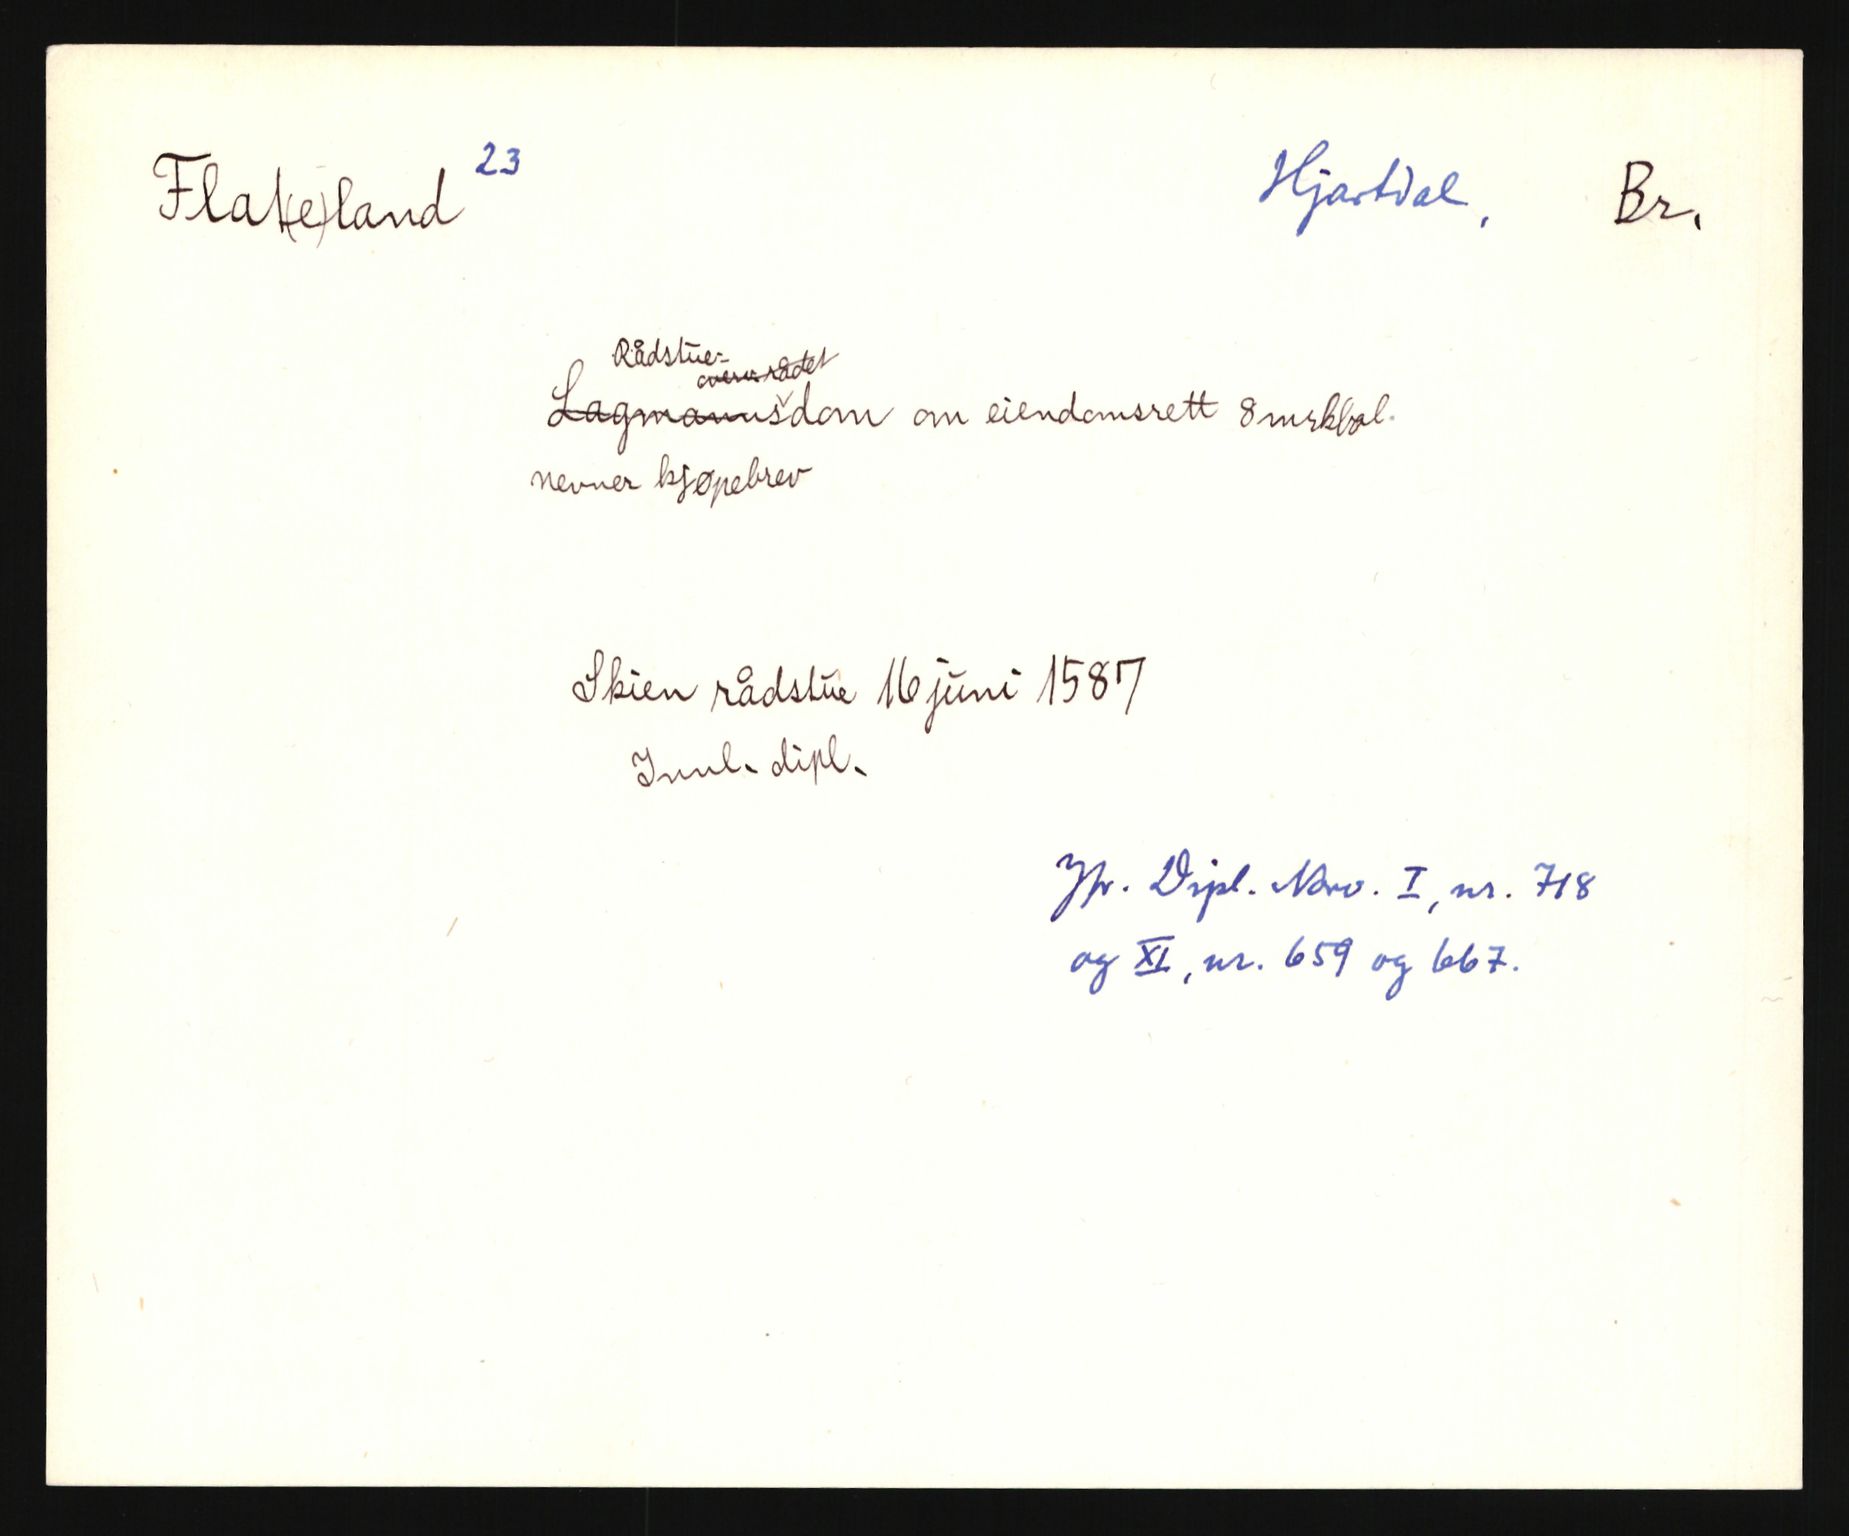 Flat(e)land 23 Hjartdal, Br.
Rådstue-
Lagmannsdom om eiendomsrett 8 mrkbol.
nevner kjøpebrev
Skien rådstue 16 juni 1587
Innl. dipl.
Jfr. Dipl. Norv. I, nr. 718
og XI, nr. 659 og 667.